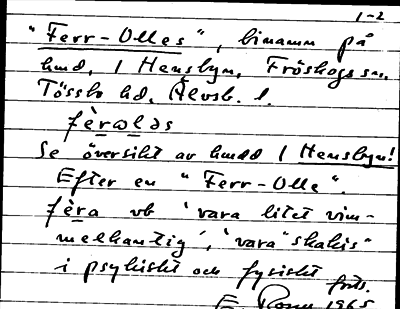 1-2
"Ferr-Olles", binamn på
hmd, 1 Hensbyn, Fröskogs sn.
Tössbo hd, Älvsb. l.
fèrωlɘs
Se översikt av hmdd 1 Hensbyn!
Efter en "Ferr-Olle".
fèra vb 'vara litet vim-
melkantig', 'vara "skakis"
i psykiskt och fysiskt forts.
E. 1965